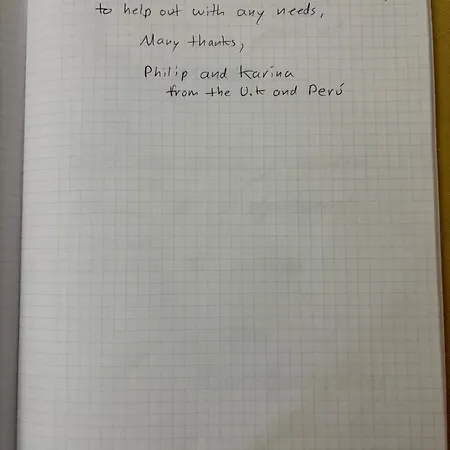 to help out with any needs,
Many thanks,
Philip and Karina
from the U.K and Perú